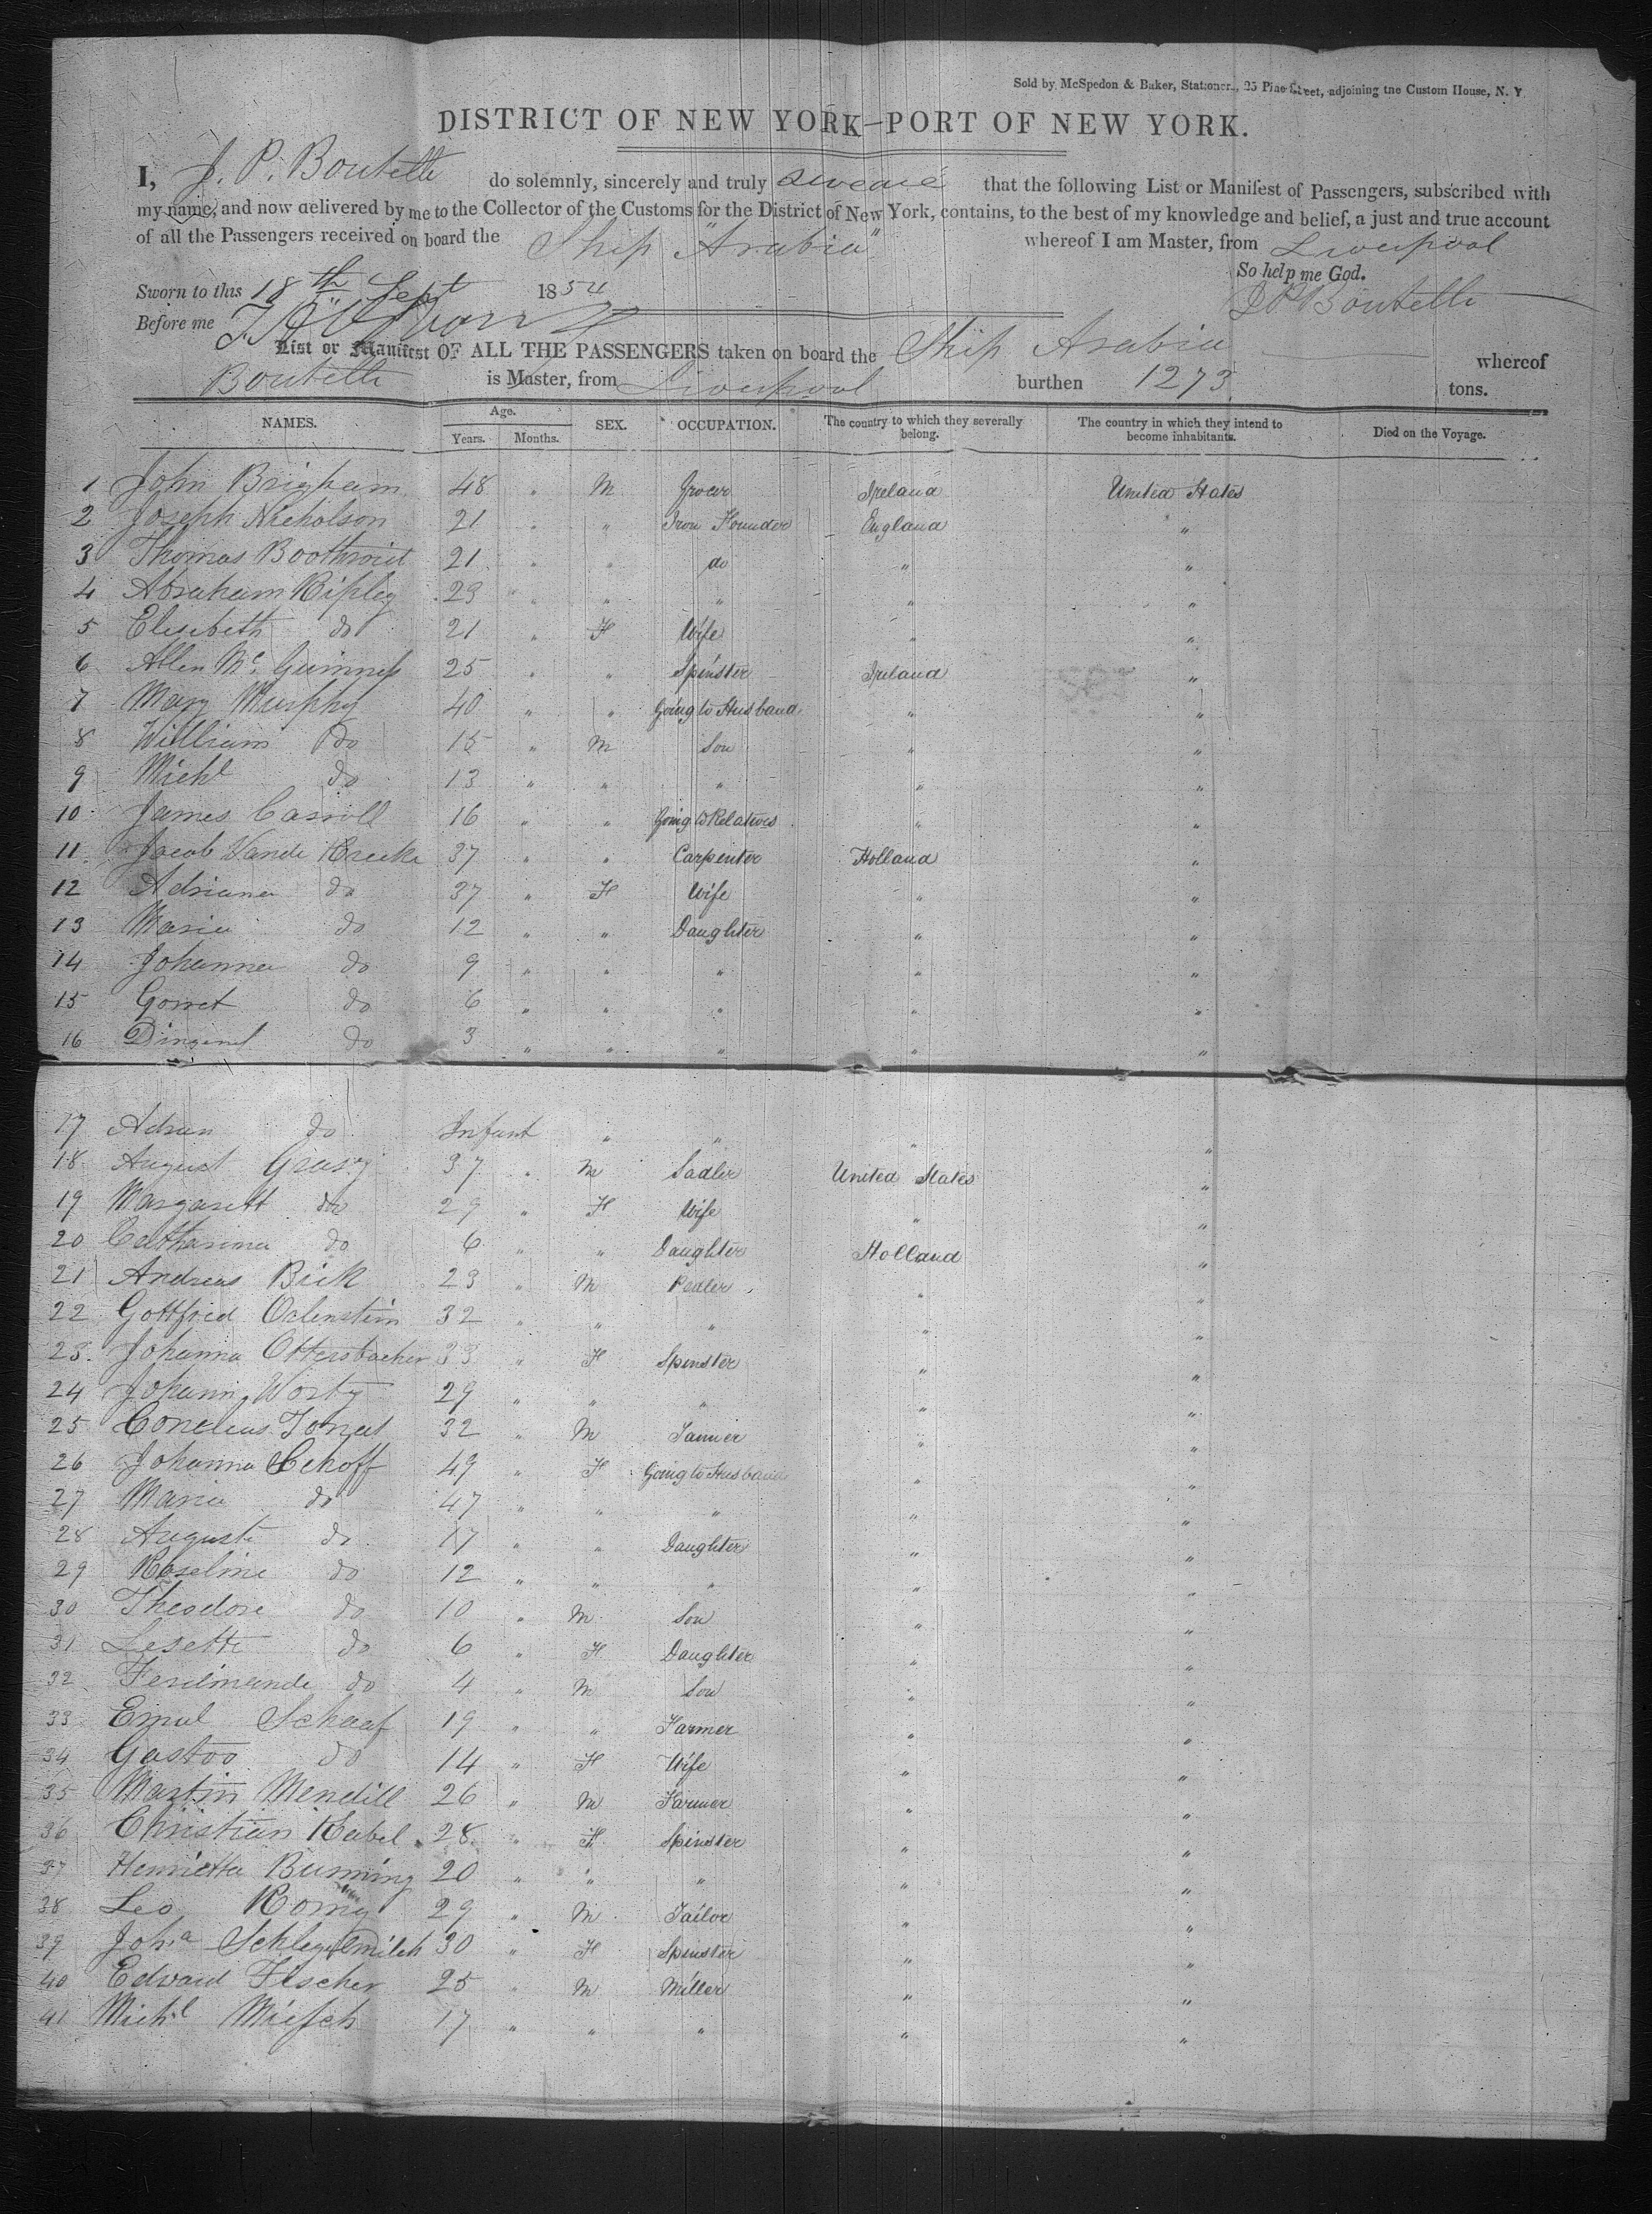 Sold by McSpedon & Baker, Stationers, 25 Pine Street, adjoining the Custom House, N. Y.
DISTRICT OF NEW YORK—PORT OF NEW YORK.
I, J. P. Boutelle do solemnly, sincerely and truly swear that the following List or Manifest of Passengers, subscribed with
my name, and now delivered by me to the Collector of the Customs for the District of New York, contains, to the best of my knowledge and belief, a just and true account
of all the Passengers received on board the Ship "Arabia" whereof I am Master, from Liverpool
So help me God.
Sworn to this 18th Sept 1854 J P Boutelle
Before me
List or Manifest OF ALL THE PASSENGERS taken on board the Ship Arabia whereof
Boutelle is Master, from Liverpool burthen 1273 tons.
NAMES. Age. Years. Months. SEX. OCCUPATION. The country to which they severally belong. The country in which they intend to become inhabitants. Died on the Voyage.
1 John Brigham 48 " M Grocer Ireland United States
2 Joseph Nicholson 21 " " Iron Founder England "
3 Thomas 21 " " do " "
4 Abraham Ripley 23 " " " " "
5 Elisebeth do 21 " F Wife " "
6 Allen Mc Guinness 25 " " Spinster Ireland "
7 Mary Murphy 40 " " Going to Husband " "
8 William do 15 " M Son " "
9 Michl do 13 " " " " "
10 James Carroll 16 " " Going to Relatives " "
11 Jacob Vande Kreeke 37 " " Carpenter Holland "
12 Adriana do 37 " F Wife " "
13 Maria do 12 " " Daughter " "
14 Johanna do 9 " " " " "
15 Gorret do 6 " " " " "
16 Dingenet do 3 " " " " "
17 Adrian do Infant " " " "
18 August 37 " M Sadler United States "
19 Margarett do 29 " F Wife " "
20 Catharina do 6 " " Daughter Holland "
21 Andreas Bick 23 " M Pedler " "
22 Gottfried 32 " " " " "
23 Johanna Ottersbacher 33 " F Spinster " "
24 Johann Worty 29 " " " " "
25 Conelius 32 " M Tanner " "
26 Johanna 49 " F Going to Husband " "
27 Maria do 47 " " " " "
28 Auguste do 17 " " Daughter " "
29 Roseline do 12 " " " " "
30 Theodore do 10 " M Son " "
31 Lesette do 6 " F Daughter " "
32 Ferdinande do 4 " M Son " "
33 Emul Schaaf 19 " " Farmer " "
34 Gastoo do 14 " F Wife " "
35 Martin Mendill 26 " M Farmer " "
36 Christian Kabel 28 " F Spinster " "
37 Henrietta Bunning 20 " " " " "
38 Leo Romy 29 " M Tailor " "
39 Joha Schlegelmilch 30 " F Spinster " "
40 Edward Fischer 25 " M Miller " "
41 Michl 17 " " " " "